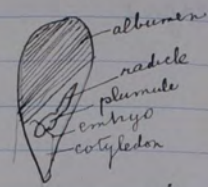 albumen
radicle
plumule
embryo
cotyledon